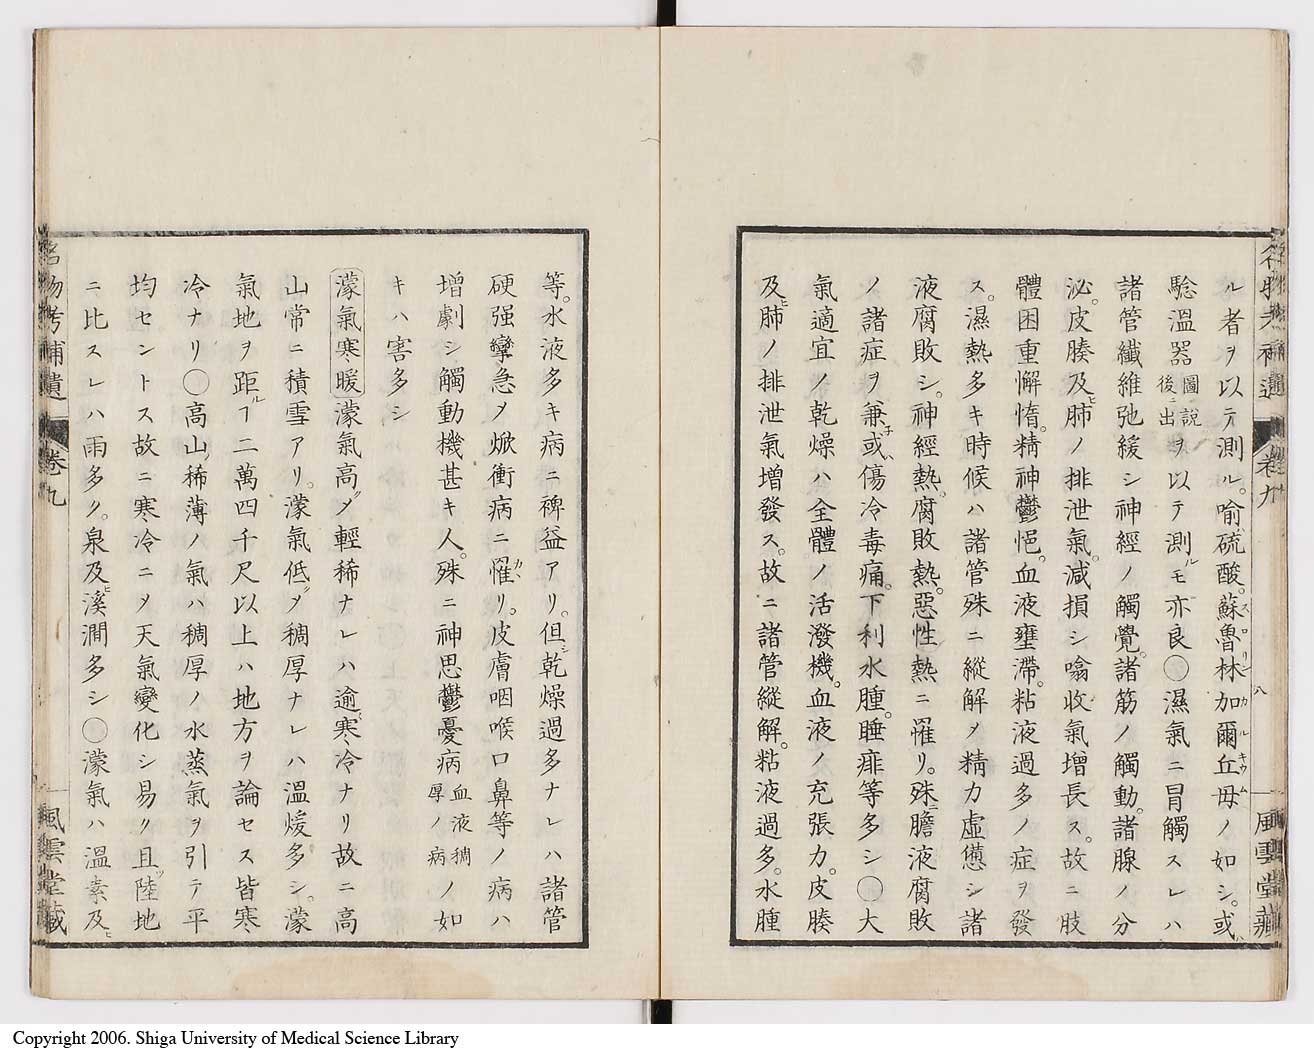 ル者ヲ以テ測ル。喻硫酸。蘇魯林加爾丘母ノ如シ。或ハ
驗溫器圖說後ニ出ヲ以テ測ルモ亦良〇濕氣ニ冒觸スレハ
諸管纖維弛緩シ神經ノ觸覺。諸筋ノ觸動。諸腺ノ分
泌。皮腠及ヒ肺ノ排泄氣。減損シ噏收氣增長ス。故ニ肢
體困重懈惰。精神鬱悒。血液壅滯。粘液過多ノ症ヲ發
ス。濕熱多キ時候ハ諸管殊ニ縱解〆精力虛憊シ諸
液腐敗シ。神經熱。腐敗熱。惡性熱ニ罹リ。殊ニ膽液腐敗
ノ諸症ヲ兼子或ハ傷冷毒痛。下利水腫。睡痱等多シ〇大
氣適宜ノ乾燥ハ全體ノ活潑機。血液ノ充張力。皮腠
及ヒ肺ノ排泄氣增發ス。故ニ諸管縱解。粘液過多。水腫
名物考補遺 卷九 八 風雲堂藏
等。水液多キ病ニ裨益アリ。但シ乾燥過多ナレハ諸管
硬强攣急〆焮衝病ニ罹リ。皮膚咽喉口鼻等ノ病ハ
增劇シ觸動機甚キ人。殊ニ神思鬱憂病血液稠厚ノ病ノ如
キハ害多シ
濛氣寒暖濛氣高〆輕稀ナレハ逾寒冷ナリ故ニ高
山常ニ積雪アリ。濛氣低〆稠厚ナレハ溫煖多シ。濛
氣地ヲ距ルヿ二萬四千尺以上ハ地方ヲ論セス皆寒
冷ナリ〇高山稀薄ノ氣ハ稠厚ノ水蒸氣ヲ引テ平
均セントス故ニ寒冷ニ〆天氣變化シ易ク且ツ陸地
ニ比スレハ雨多ク。泉及ヒ溪澗多シ〇濛氣ハ溫素及ヒ
名物考補遺 卷九 風雲堂藏
Copyright 2006. Shiga University of Medical Science Library